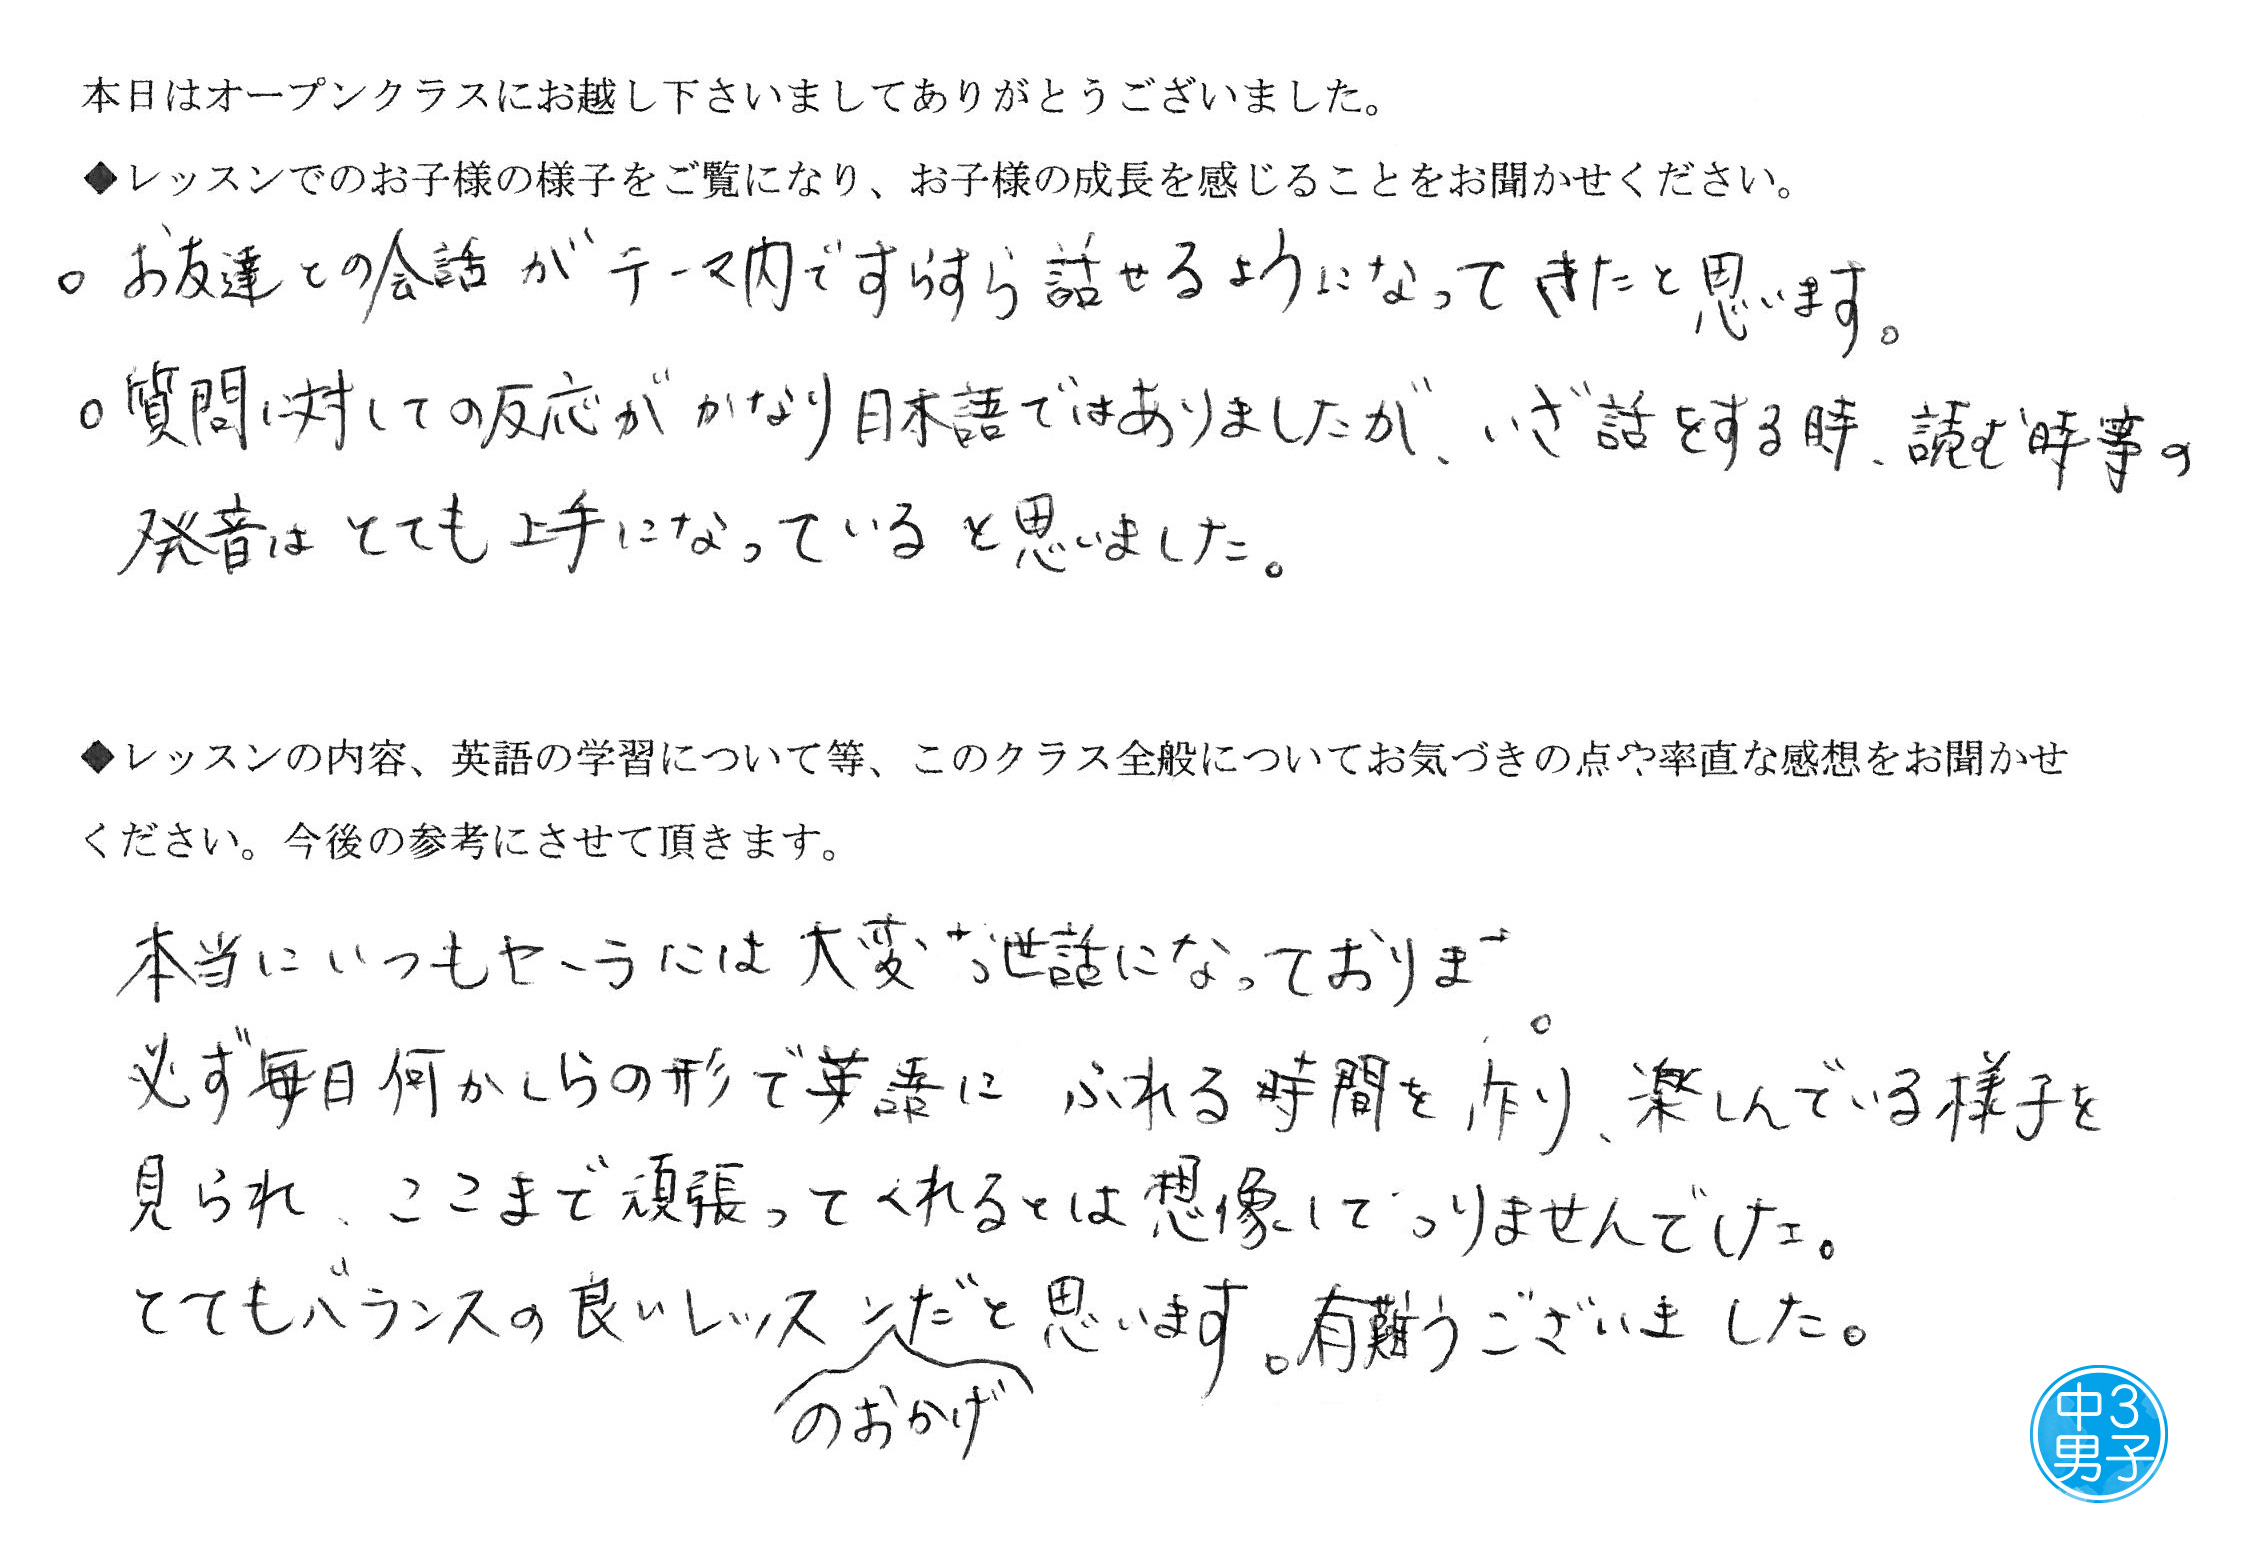 本日はオープンクラスにお越し下さいましてありがとうございました。
◆レッスンでのお子様の様子をご覧になり、お子様の成長を感じることをお聞かせください。
○ お友達との会話がテーマ内ですらすら話せるようになってきたと思います。
○ 質問に対しての反応がかなり日本語ではありましたが、いざ話をする時、読む時等の
発音はとても上手になっていると思いました。
◆レッスンの内容、英語の学習について等、このクラス全般についてお気づきの点や率直な感想をお聞かせ
ください。今後の参考にさせて頂きます。
本当にいつもセーラには大変お世話になっておりま。
必ず毎日何かしらの形で英語にふれる時間を作り、楽しんでいる様子を
見られ、ここまで頑張ってくれるとは想像しておりませんでした。
とてもバランスの良いレッスンだと思います。有難うございました。
のおかげ
中3
男子